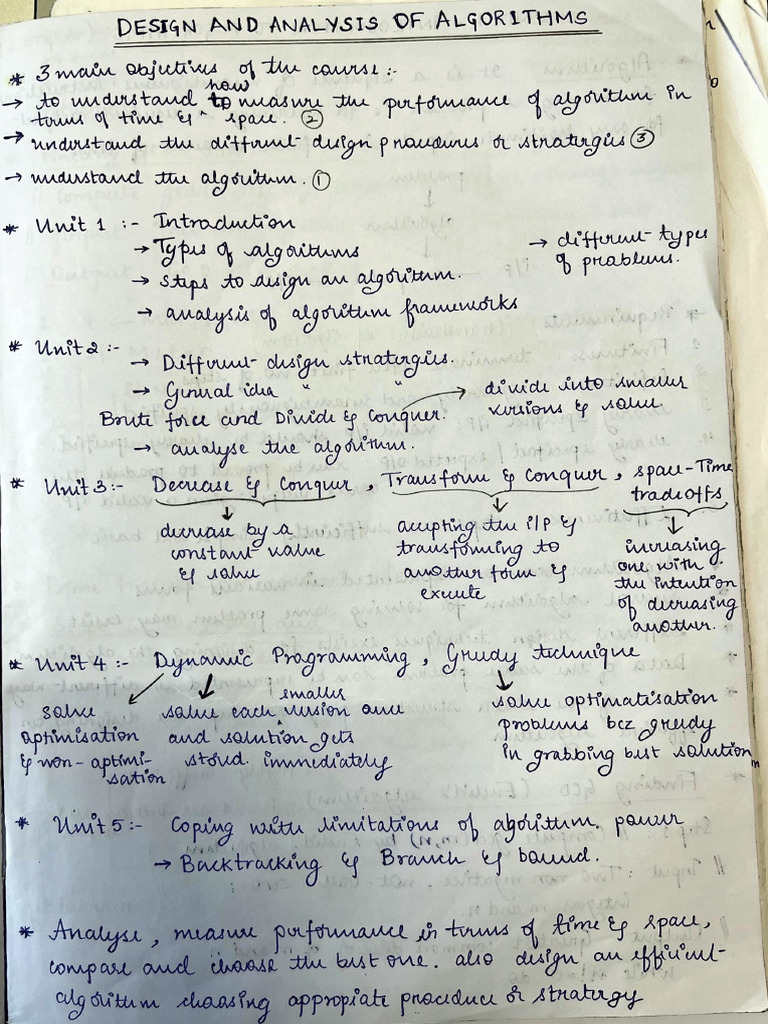 DESIGN AND ANALYSIS OF ALGORITHMS
* 3 main objectives of the course:-
how
→ to understand to measure the performance of algorithm in
terms of time & ^ space. ②
→ understand the different design procedures or stratergies ③
→ understand the algorithm. ①
* Unit 1 :- Introduction
→ Types of algorithms
→ different types
of problems.
→ steps to design an algorithm.
→ analysis of algorithm frameworks
* Unit 2 :-
→ Different design stratergies.
→ General idea " "
Brute force and Divide & Conquer. → divide into smaller
versions & solve
→ analyse the algorithm.
* Unit 3 :- Decrease & Conquer, Transform & Conquer, space-Time
tradeoffs
↓
decrease by a
constant value
& solve
↓
accepting the i/P &
transforming to
another form &
execute
↓
increasing
one with
the intention
of decreasing
another.
* Unit 4 :- Dynamic Programming, Greedy technique
solve
optimisation
& non-optimi-
sation
smaller
solve each version once
and solution gets
stored immediately
solve optimatisation
problems bcz greedy
in grabbing best solution
* Unit 5 :- Coping with limitations of algorithm power
→ Backtracking & Branch & bound.
* Analyse, measure performance in terms of time & space,
compare and choose the best one. also design an efficient
algorithm choosing appropiate procedure or stratergy